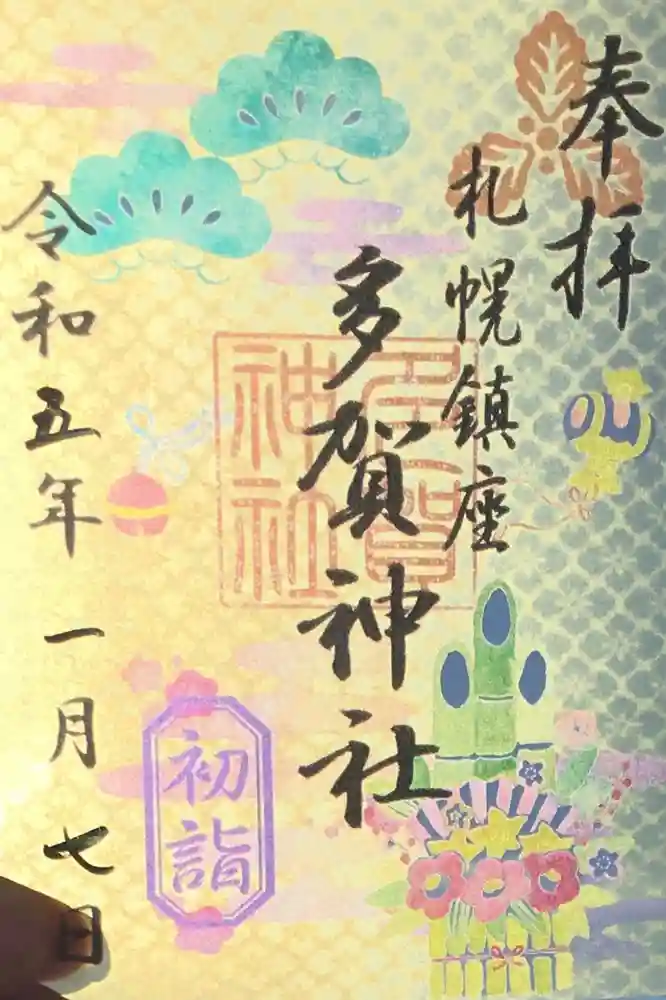 奉拝
札幌鎮座
多賀神社
多賀神社
令和五年一月七日
初詣